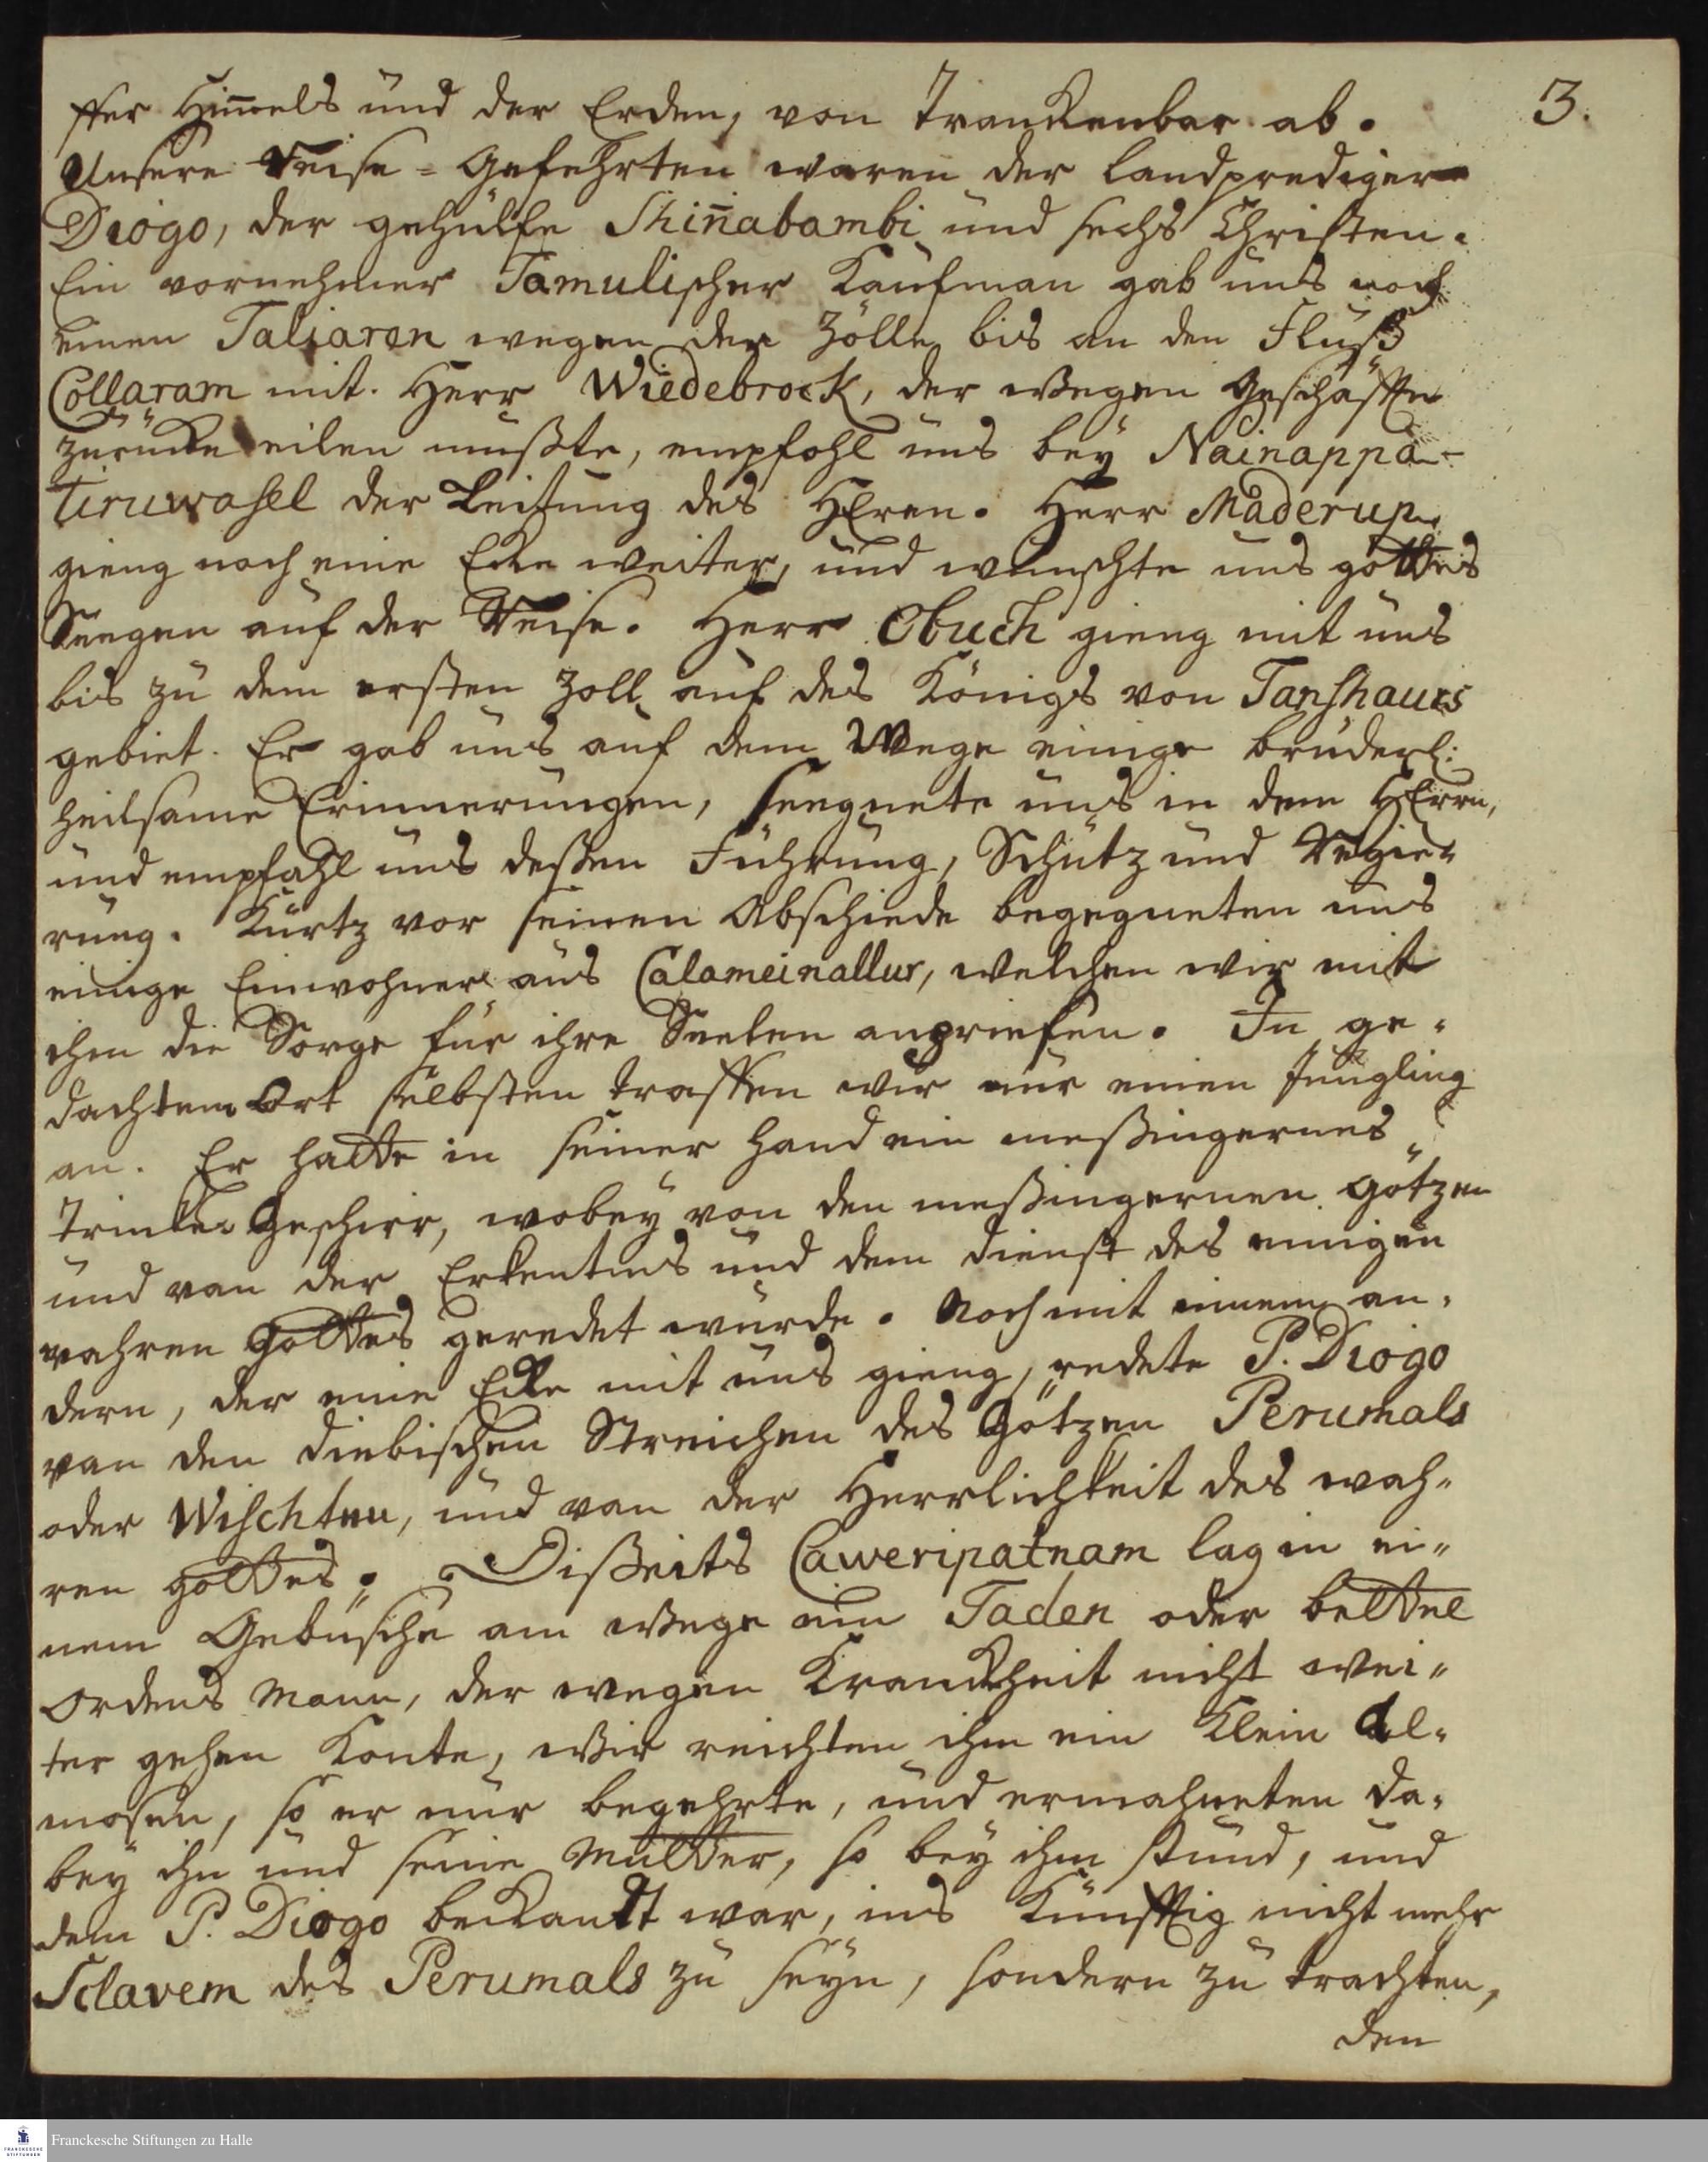 3.
ffer Him̄els und der Erden, von Tranckenbar ab.
Unsere Reise-Gefehrten waren der Landprediger
Diogo, der gehülfe Shin̄atambi und sechs Christen.
Ein vornehmer Tamulischer Kaufman gab uns noch
einen Taliaren wegen der Zölle bis an den Fluß
Collaram mit. Herr Wiedebrock, der wegen Geschäffte
zurücke eilen mußte, empfohl uns bey Nainappa-
tiruwasel der Leitung des HErrn. Herr Maderup
gieng noch eine Ecke weiter, und wünschte uns gottes
Seegen auf der Reise. Herr Obuch gieng mit uns
bis zu dem ersten Zoll auf des Königs von Tanshaurs
gebiet. Er gab uns auf dem Wege einige brüderl:
heilsame Erinnerungen, seegnete uns in dem HErrn,
und empfahl uns deßen Führung, Schutz und Regie-
rung. Kurtz vor seinen Abschiede begegneten uns
einige Einwohner aus Calameinallur, welchen wir mit
ihm die Sorge für ihre Seelen anpriesen. In ge-
dachtem Ort selbsten traffen wir nur einen Jüngling
an. Er hatte in seiner Hand ein meßingernes
Trincke Geschirr, wobey von den meßingernen Götzen
und von der Erkentnis und dem dienst des einigen
wahren Gottes geredet wurde. Noch mit einem an-
dern, der eine Ecke mit uns gieng, redete P. Diogo
von den diebischen Streichen des Götzen Perumals
oder Wischtnu, und von der Herrlichkeit des wah-
ren gottes. Dißeits Caweripatnam lag in ei-
nem Gebüsche am Wege ein Taden oder bettel
Ordens Mann, der wegen Kranckheit nicht wei-
ter gehen konte, Wir reichten ihm ein klein Al-
mosen, so er nur begehrte, und ermahneten da-
bey ihn und seine Mutter, so bey ihm stund, und
dem P. Diogo beckandt war, ins Künfftig nicht mehr
Sclavem des Perumals zu seyn, sondern zu trachten,
den
Franckesche Stiftungen zu Halle